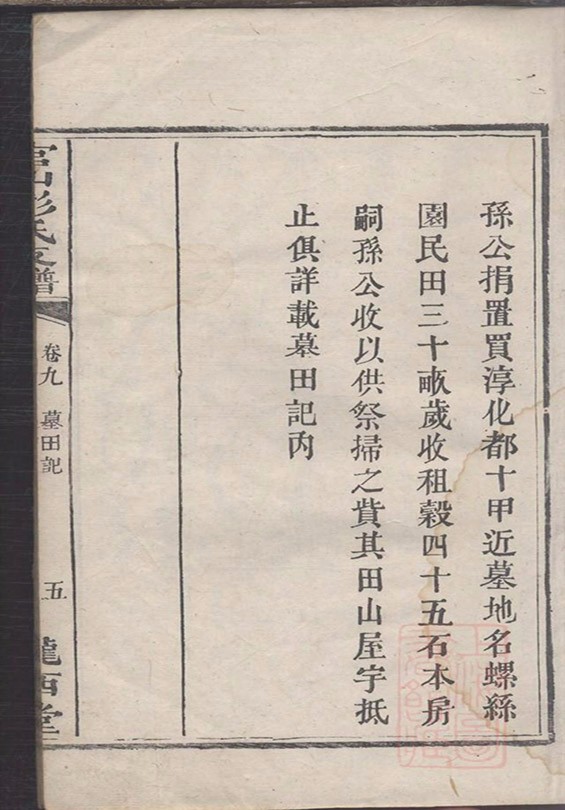 孫公捐置買淳化都十甲近墓地名螺絲
園民田三十畝歲收租穀四十五石本房
嗣孫公收以供祭掃之貲其田山屋宇抵
止俱詳載墓田記內
彭氏支譜
卷九
墓田記
五
隴西堂